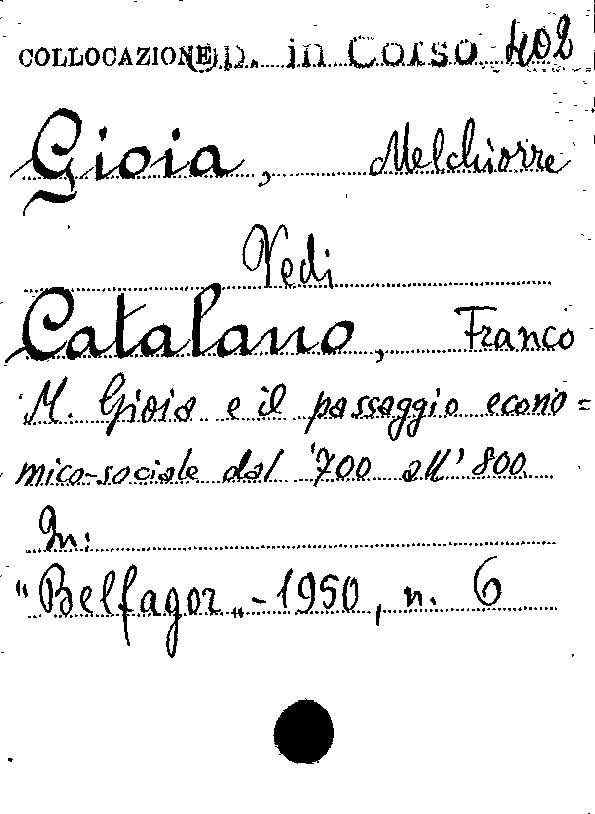 COLLOCAZIONE Op. in Corso 402
Gioia, Melchiorre
Vedi
Catalano, Franco
M. Gioia e il passaggio econo=
mico-sociale dal '700 all'800
In:
"Belfagor" - 1950, n. 6